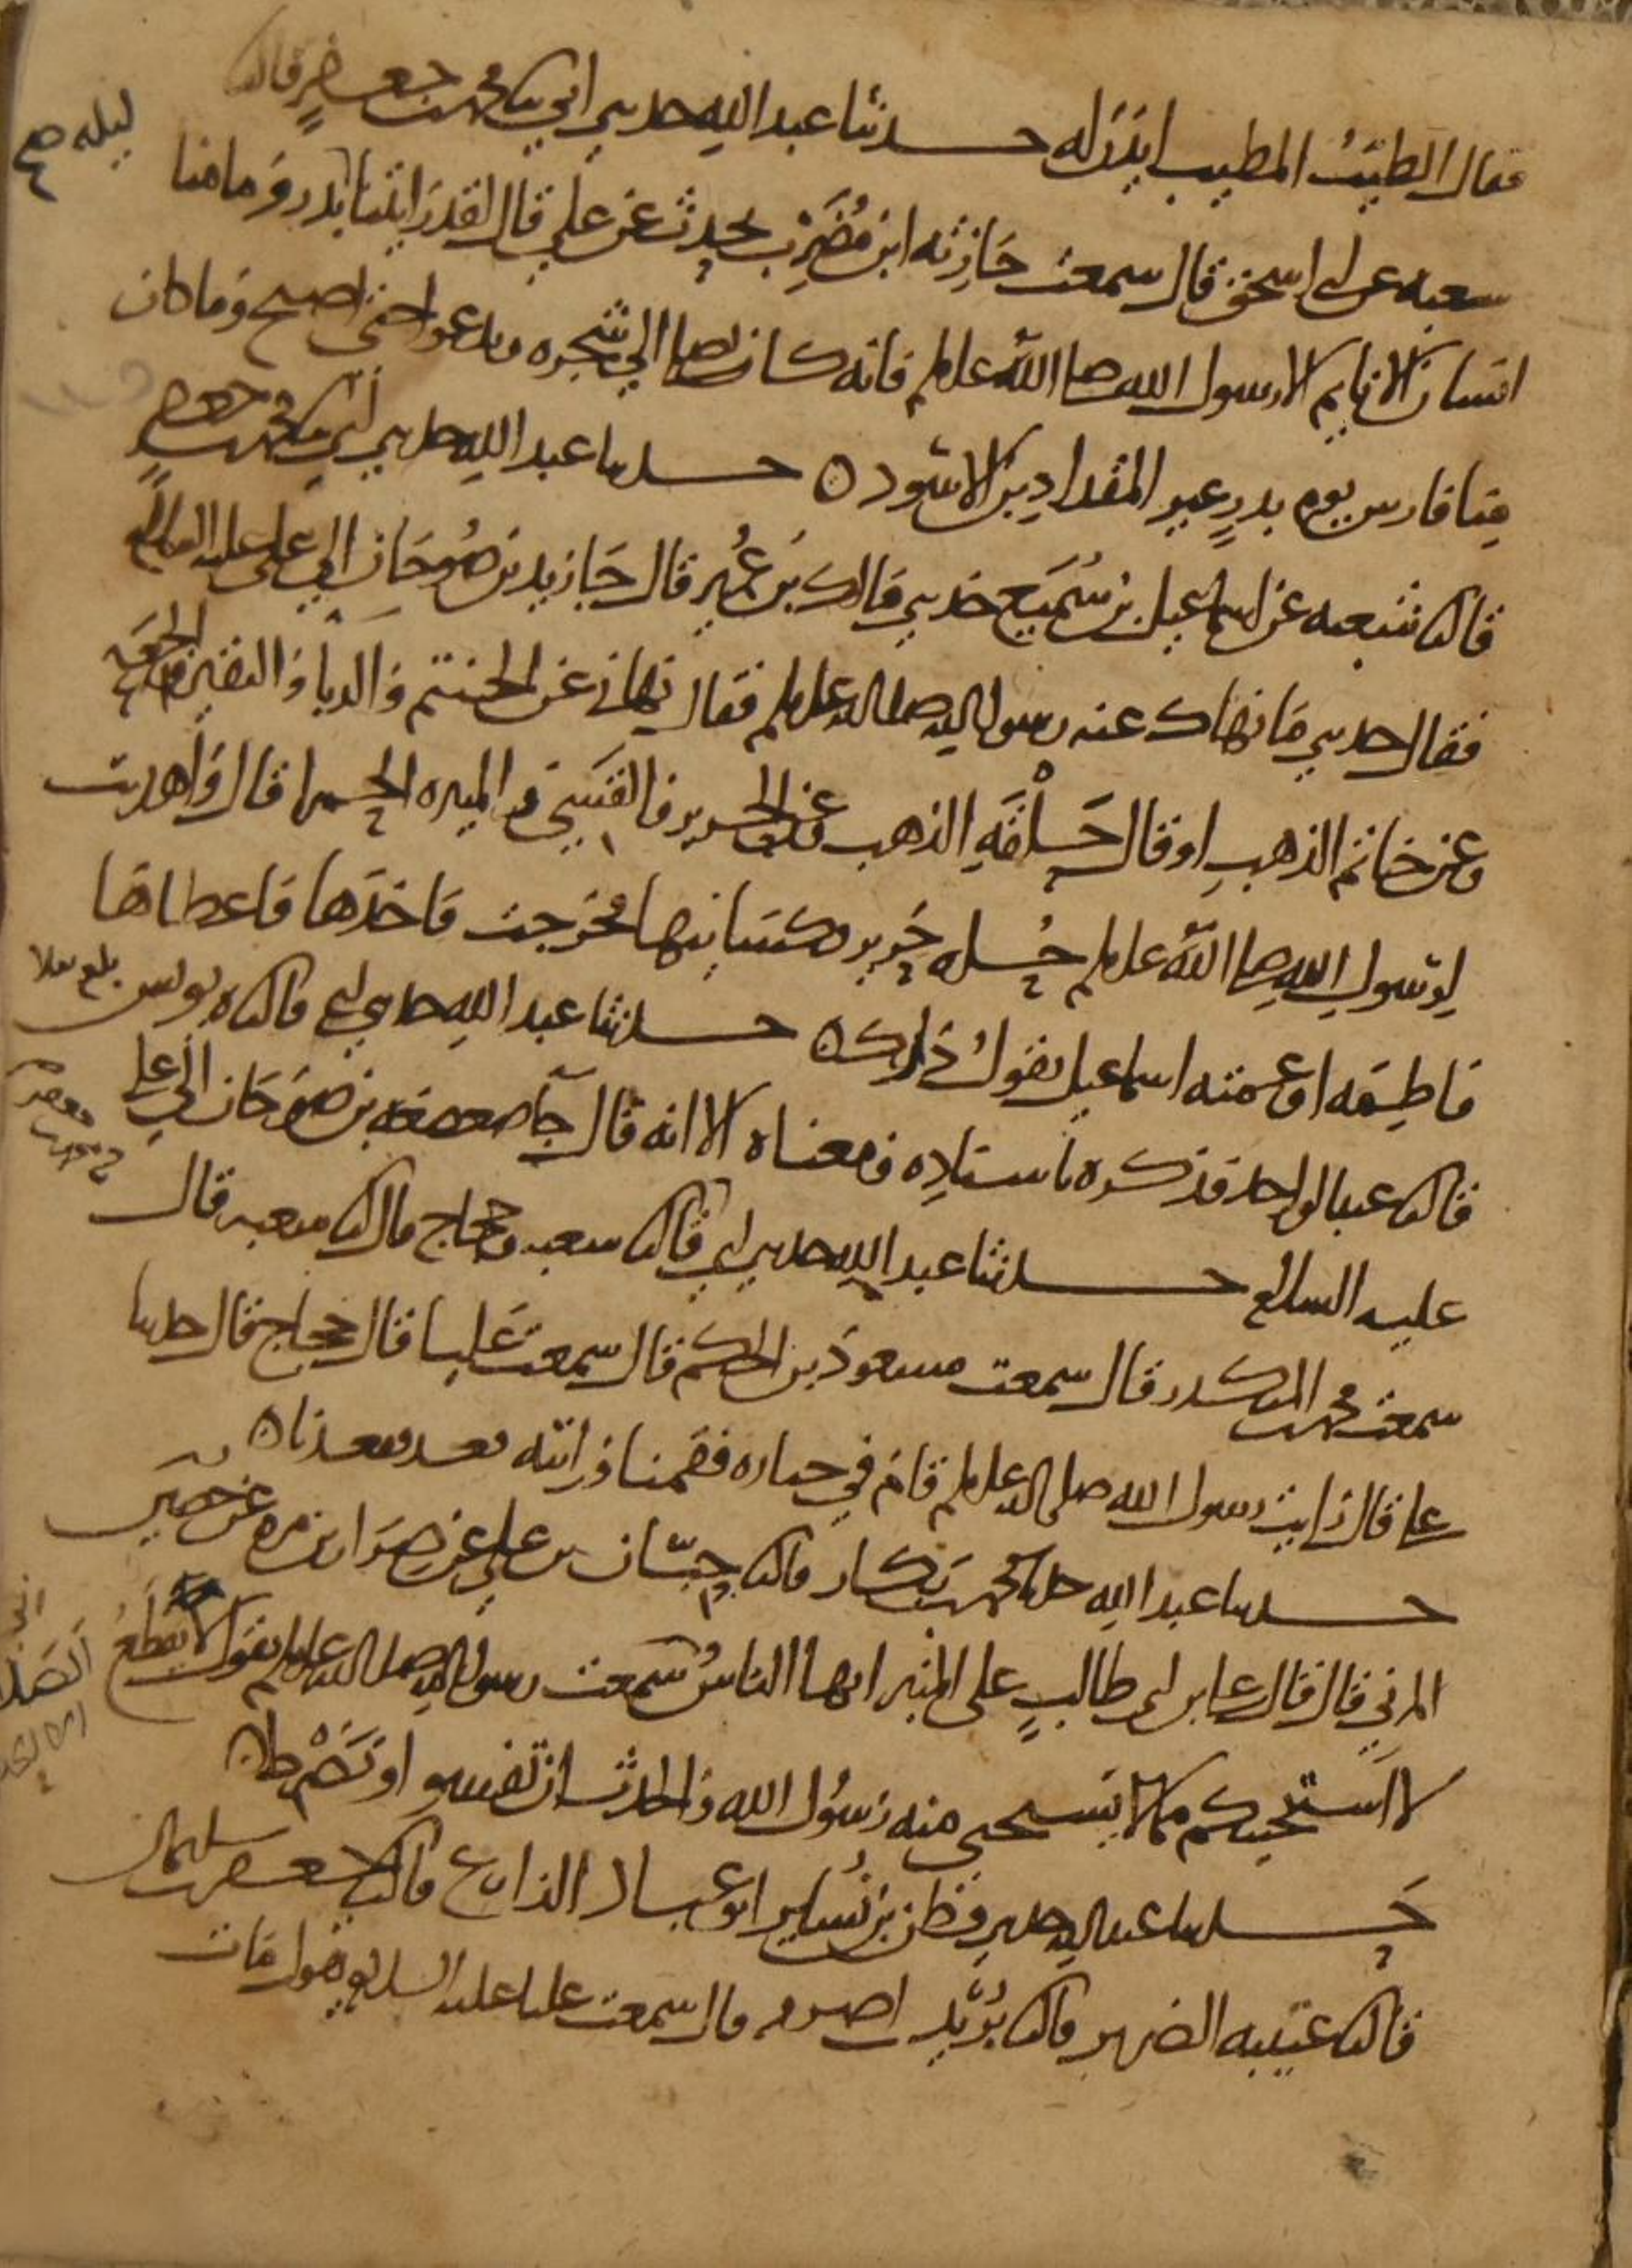 فقال الطيب المطيب ايذن له حدثنا عبد الله حدثني ابي ثنا محمد بن جعفر قال ثنا
شعبه عن ابي اسحق قال سمعت حارثه ابن مضرب يحدث عن علي قال لقد رايتنا ببدر وما منا
انسان الا نايم الا رسول الله صلى الله عليه وسلم فانه كان يصلي الى شجره ويدعو حتى اصبح وما كان
منا فارس يوم بدر غير المقداد بن الاسود ه حدثنا عبد الله حدثني ابي ثنا محمد بن جعفر
قال ثنا شعبه عن اسماعيل بن سميع حدثني مالك بن عمير قال جا زيد بن صوحان الى علي عليه السلام
فقال حدثني ما نهاك عنه رسول الله صلى الله عليه وسلم فقال نهاني عن الحنتم والدبا والنقير والجعه
وعن خاتم الذهب او قال حلقه الذهب وعن الحرير والقسي والميثره الحمرا قال واهديت
لرسول الله صلى الله عليه وسلم حله حرير فكسانيها فخرجت فاخذها فاعطاها
فاطمه او عمته اسماعيل يقول ذلك ه حدثنا عبد الله حدثني ابي قال ثناه يونس
قال ثنا عبد الواحد فذكره باسناده ومعناه الا انه قال جا صعصعه بن صوحان الى علي
عليه السلام حدثنا عبد الله حدثني ابي قال ثنا شعبه وحجاج قال ثنا شعبه قال
سمعت محمد بن المنكدر قال سمعت مسعود بن الحكم قال سمعت عليا قال حجاج قال حدثنا
علي قال رايت رسول الله صلى الله عليه وسلم قام في جنازه فقمنا ورايته قعد فقعدنا ه
حدثنا عبد الله حدثنا محمد بن بكار قال ثنا حبان بن علي عن ضرار بن مره عن حصين
المزني قال قال علي بن ابي طالب على المنبر ايها الناس سمعت رسول الله صلى الله عليه وسلم يقول لا يقطع
لا استحييكم مما لا يستحيي منه رسول الله والحدث ان تفسو او تضرط ه
حدثنا عبد الله حدثني قطن بن نسير ابو عباد الذارع قال ثنا جعفر بن سليمان
قال ثنا عتيبه الضرير قال ثنا بريد بن اصرم قال سمعت عليا عليه السلام يقول مات
ليله
بلغ
الصلاة